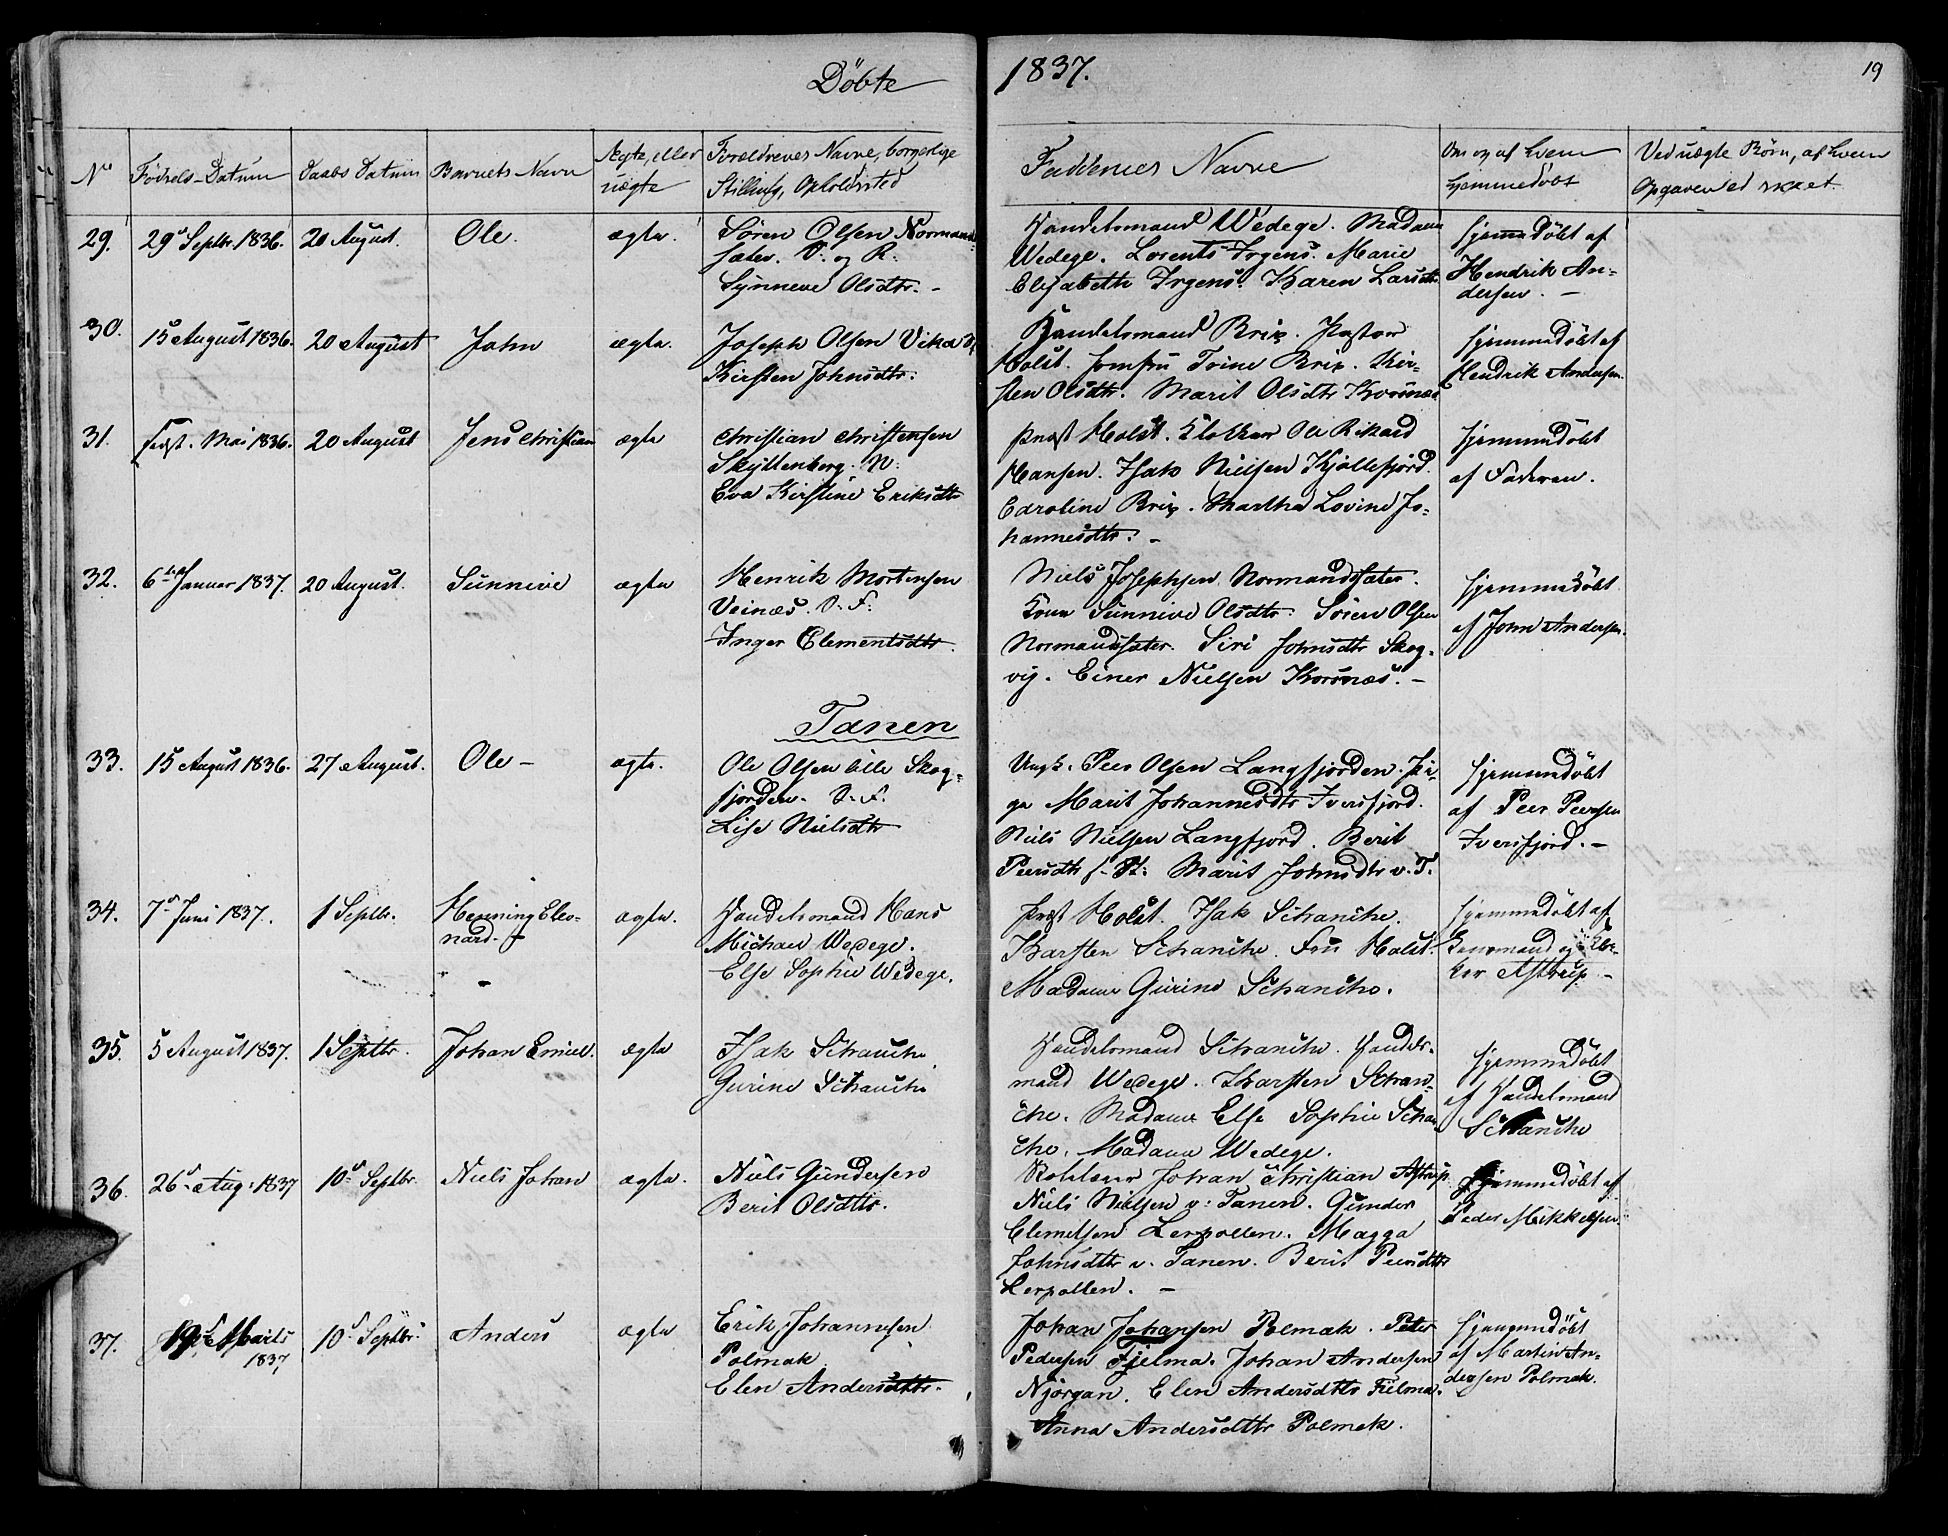 Döbte 1837. 19
No Födsels-Datum Daabs Datum Barnets Navn Ægte, eller uægte Forældrenes Navne, borgerlige Stilling, Opholdssted Faddernes Navne Om og af hvem hjemmedöbt Ved uægte Börn, af hvem Opgaven er skeet.
29. 29d Septbr. 1836. 20 August. Ole. ægte. Sören Olsen Normands-
sæter. S. og R.
Synneve Olsdtr. -
Handelsmand Wedege. Madam
Wedege. Lorents Irgens. Marie
Elisabeth Irgens. Karen Larsdtr.
hjemmedöbt af
Hendrik An-
dersen. -
30. 15d August 1836. 20 August John ægte. Joseph Olsen Vika
Kirsten Johnsdtr.
Handelsmand Brix. Pastor
Holst. Jomfru Trine Brix. Kir-
sten Olsdtr. Marit Olsdtr Korsnæs
hjemmedöbt af
Hendrik Andersen.
31. Mai 1836. 20 August Jens Christian ægte Christian Christensen
Skyttenberg. N:
Eva Kirstine Eriksdtr
Præst Holst. Klokker Ole Rikard
Hansen. Isak Nielsen Kjöllefjord.
Caroline Brix. Martha Lovine Jo-
hannesdtr. -
hjemmedöbt
af Faderen.
32. 6te Januar 1837. 20 August. Sunnive ægte Henrik Mortensen
Veinæs. S. F:
Inger Clementsdtr.
Niels Josephsen Normandssæter.
Kone Sunnive Olsdtr. Sören Olsen
Normandssæter. Siri Johnsdtr Skog-
vig. Einer Nielsen Korsnæs. -
hjemmedöbt
af John Andersen.
Tanen
33. 15 August 1836. 27 August. Ole - ægte. Ole Olsen lille Skog-
fjorden. S. F.
Lise Nielsdtr
Ungk. Peer Olsen Langfjorden. Pi-
ge Marit Johannesdtr Iversfjord.
Niels Nielsen Langfjord. Berit
Peersdtr f. St: Marit Johnsdtr v. T.
hjemmedöbt
af Peer Peersen
Iversfjord. -
34. 7d Juni 1837. 1 Septbr. Henning Eleo-
nard. - ægte. Handelsmand Hans
Michael Wedege.
Else Sophie Wedege.
Præst Holst. Isak Schanche.
Karsten Schanche. Fru Holst.
Madame Gurine Schanche.
hjemmedöbt af
Astrup -
35. 5 August 1837. 1 Septbr. Johan Emiel. ægte Isak Schanche
Gurine Schanche
Handelsmand Schanche. Handels-
mand Wedege. Karsten Schan-
che. Madame Else Sophie Schan-
che. Madame Wedege.
hjemmedöbt
af Handelsmand
Schanche
36. 26d Aug: 1837 10d Septbr. Niels Johan ægte. Niels Gundersen
Berit Olsdtr.
Johan Christian Astrup
Niels Nielsen v: Tanen. Gunder
Clemetsen Lerpollen. Magga
Johnsdtr v. Tanen. Berit Peersdtr
Lerpollen. -
Hjemmedöbt af
Peder Mikkelsen.
37. 19de Marts
1837 10d Septbr. Anders ægte Erik Johannesen
Polmak
Elen Andersdtr.
Johan Johansen Polmak. Peter
Pedersen Fjelma. Johan Andersen
Njörgan. Elen Andersdtr Fielma.
Anna Andersdtr Polmak.
hjemmedöbt
af Martin An-
dersen Polmak.